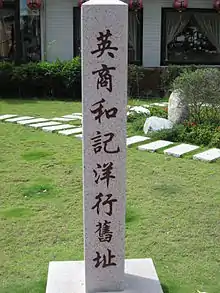 英商和記洋行舊址